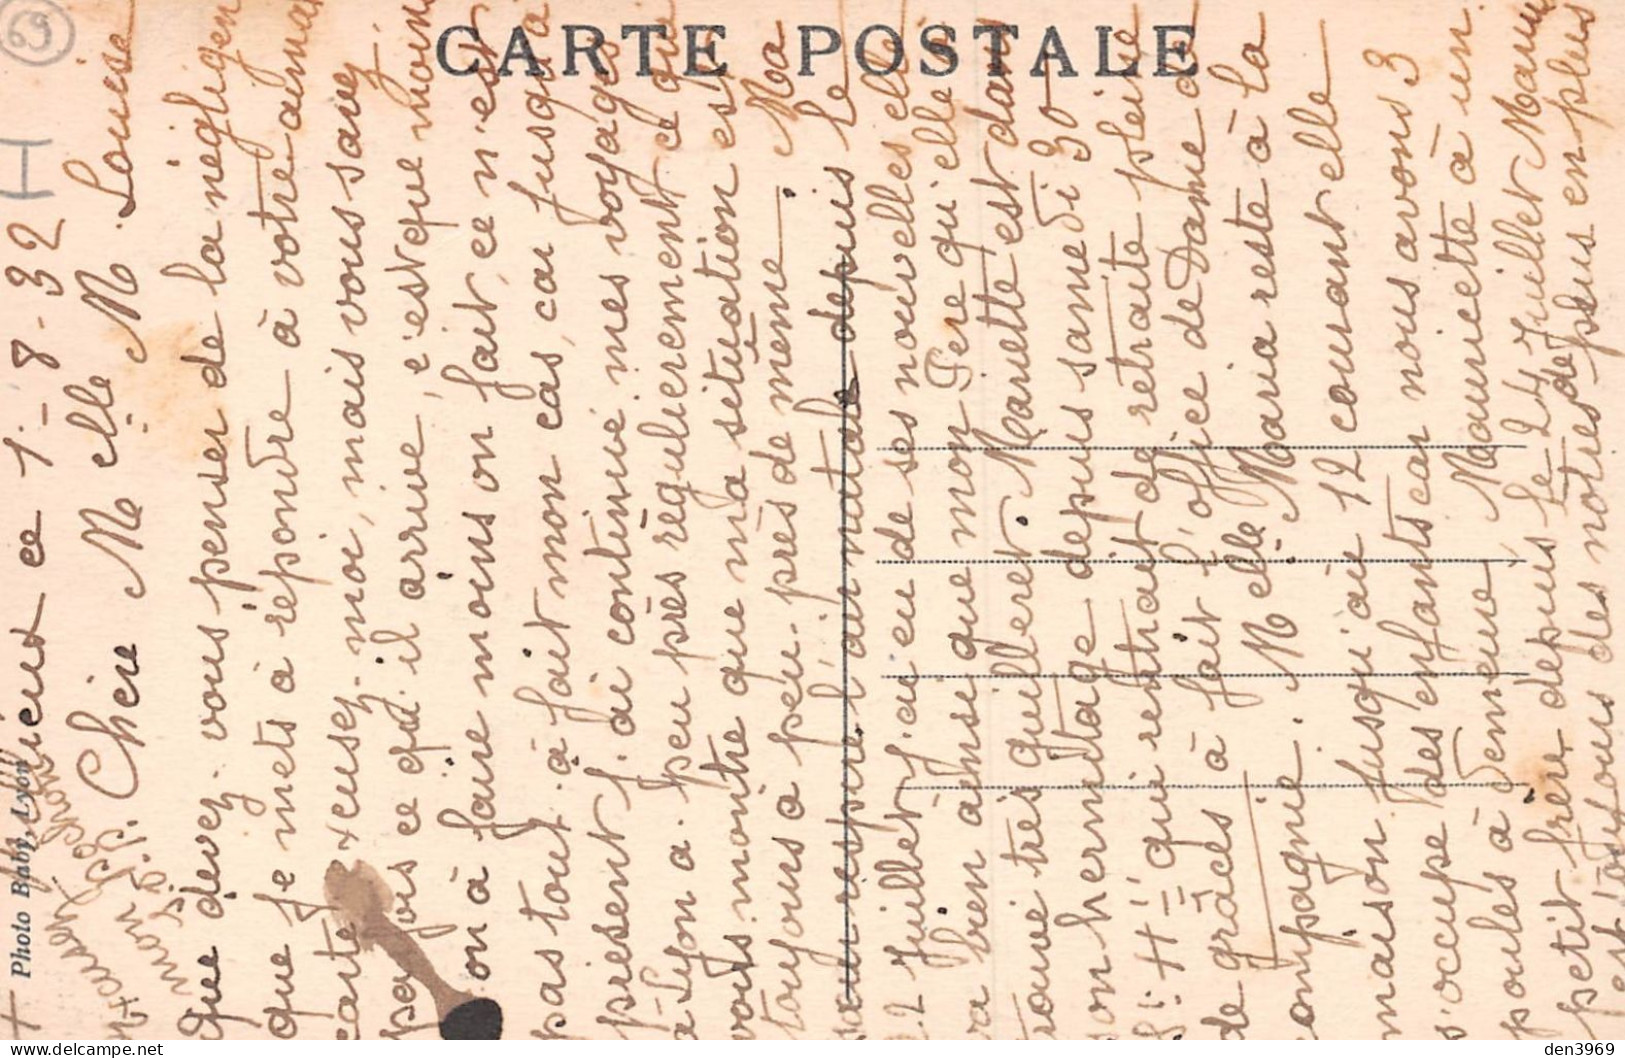 69
H
CARTE POSTALE
Photo Baby, Lyon
+ ce 1-8-32
Excusez
mon cochon
S.P.
Chère Melle M. Louise
Que devez-vous penser de la négligen
que je mets à répondre à votre aimab
carte excusez-moi, mais vous savez
parfois ce qu'il arrive, c'est que moin
on à faire moins on fait, ce n'est
pas tout-à-fait mon cas, car jusqu'à
présent j'ai continué mes voyages
à Lyon a-peu près régulièrement ce qui
vous montre que ma situation est
toujours a peu-près de même. Ma
soeur respire l'air natale depuis le
22 Juillet j'ai eu de ses nouvelles elle
va bien ainsi que mon Père qu'elle à
trouvé très guilleret. Mariette est dans
son hermitage depuis samedi 30
qui rentrait de retraite pleine
de grâces à fait l'office de Dame de
compagnie. Melle Maria reste à la
maison jusqu'au 12 courant elle
s'occupe des enfants car nous avons 3
poules à demeure Mauricette à un
petit frère depuis le 24 Juillet Mauri
est toujours des notres de plus en plus
den3969